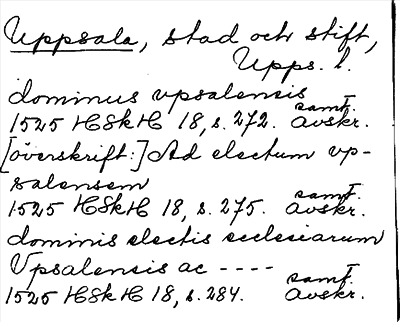 Uppsala, stad och stift,
Upps. l.
dominus vpsalensis
1525 HSkH 18, s. 272. samt. avskr.
[överskrift:] Ad electum vp-
salensem
1525 HSkH 18, s. 275. samt. avskr.
dominis electis ecclesiarum
Vpsalensis ac ----
1525 HSkH 18, s. 284. samt. avskr.